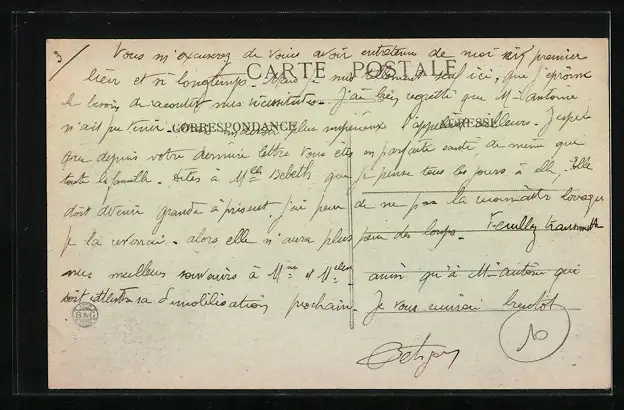 3
Vous m'excuserez de vous avoir entretenu de moi en premier
lieu et si longtemps. Mais je suis tellement seul ici, que j'éprouve
CARTE POSTALE
le besoin de raconter mes vicissitudes. J'ai bien regretté que Mr Antoine
n'ait pu venir. plus impérieux l'appelait ailleurs. J'espère
CORRESPONDANCE ADRESSE
que depuis votre dernière lettre vous êtes en parfaite santé de même que
toute la famille. Dites à Mlle Bebeth que je pense tous les jours à elle. Elle
doit devenir grande à présent, j'ai peur de ne pas la reconnaître lorsque
je la reverrai. alors elle n'aura plus peur des loups. Veuillez transmettre
mes meilleurs souvenirs à Mme et Mlles ainsi qu'à Mr Antoine qui
doit attendre sa démobilisation prochaine. Je vous écrirai bientôt
B&G